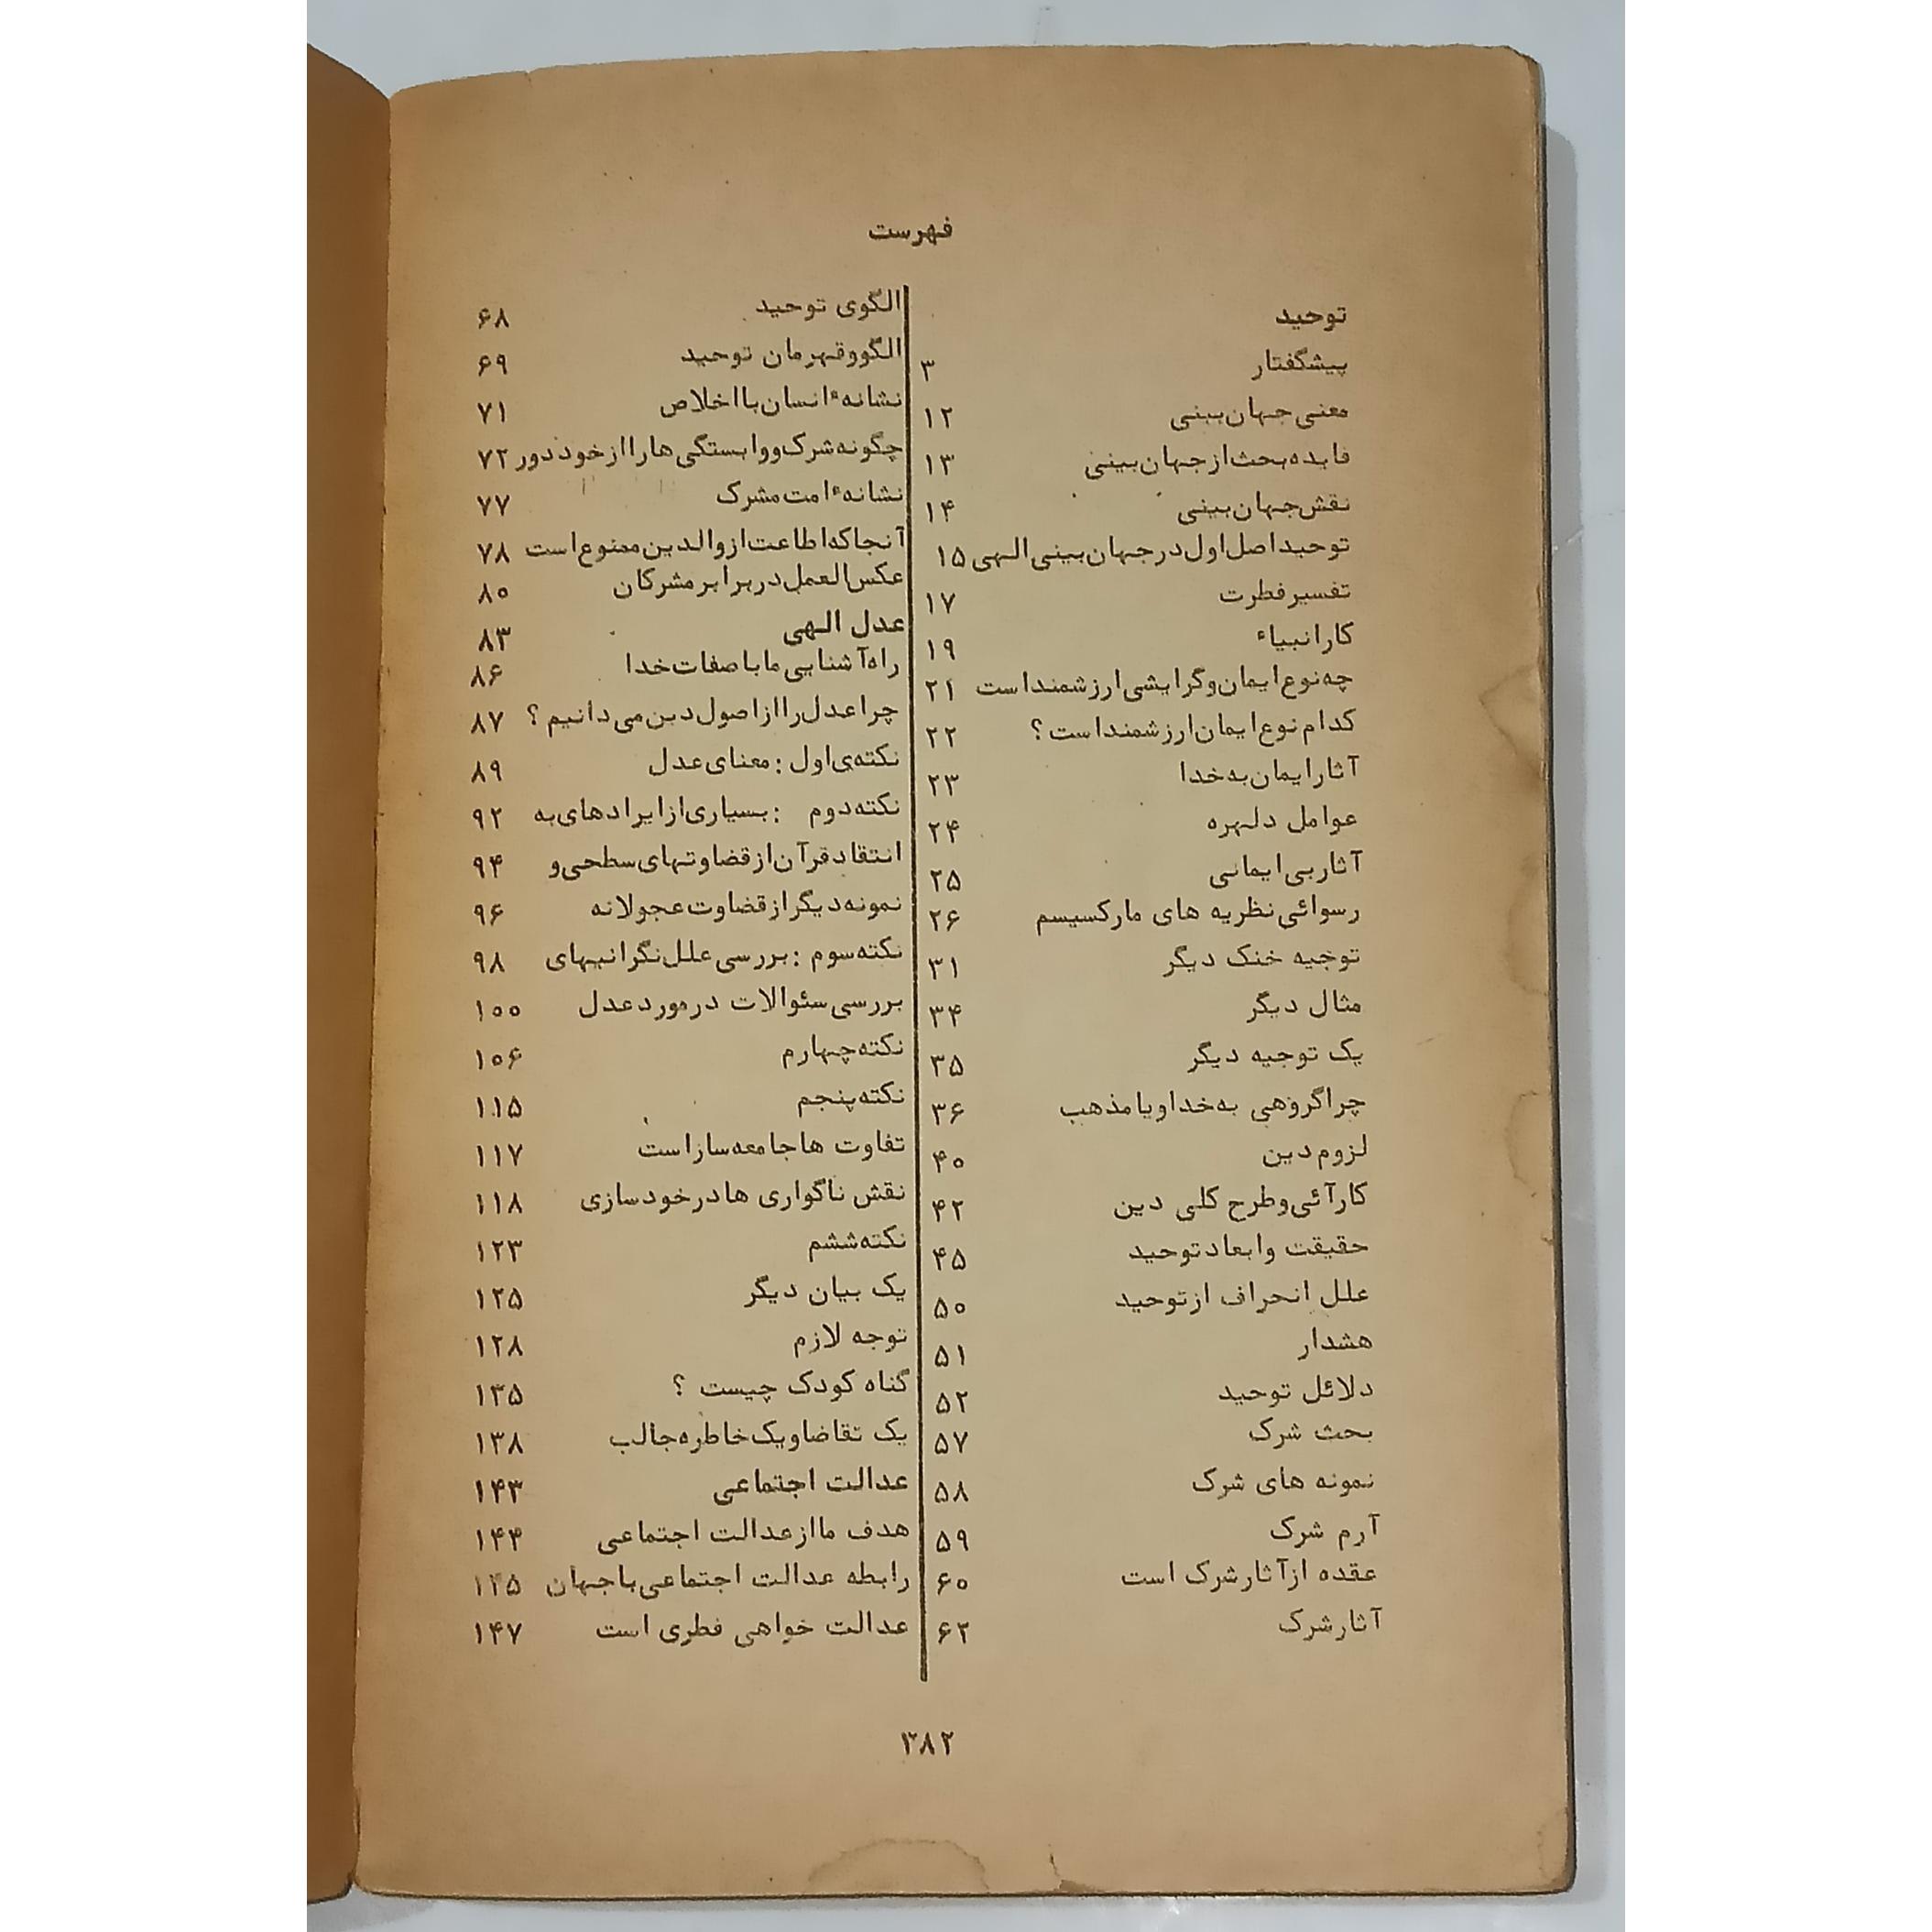 فهرست
توحید
پیشگفتار ۳
معنی جهان بینی ۱۲
فایده بحث از جهان بینی ۱۳
نقش جهان بینی ۱۴
توحید اصل اول در جهان بینی الهی ۱۵
تفسیر فطرت ۱۷
کار انبیاء ۱۹
چه نوع ایمان و گرایشی ارزشمند است ۲۱
کدام نوع ایمان ارزشمند است ؟ ۲۲
آثار ایمان به خدا ۲۳
عوامل دلهره ۲۴
آثار بی ایمانی ۲۵
رسوائی نظریه های مارکسیسم ۲۶
توجیه خنک دیگر ۳۱
مثال دیگر ۳۴
یک توجیه دیگر ۳۵
چرا گروهی به خدا و یا مذهب ۳۶
لزوم دین ۴۰
کارآئی و طرح کلی دین ۴۲
حقیقت و ابعاد توحید ۴۵
علل انحراف از توحید ۵۰
هشدار ۵۱
دلائل توحید ۵۲
بحث شرک ۵۷
نمونه های شرک ۵۸
آرم شرک ۵۹
عقده از آثار شرک است ۶۰
آثار شرک ۶۲
الگوی توحید ۶۸
الگو و قهرمان توحید ۶۹
نشانهء انسان با اخلاص ۷۱
چگونه شرک و وابستگی ها را از خود دور ۷۲
نشانهء امت مشرک ۷۷
آنجا که اطاعت از والدین ممنوع است ۷۸
عکس العمل در برابر مشرکان ۸۰
عدل الهی ۸۳
راه آشنایی ما با صفات خدا ۸۶
چرا عدل را از اصول دین می دانیم ؟ ۸۷
نکته ی اول : معنای عدل ۸۹
نکته دوم : بسیاری از ایرادهای به ۹۲
انتقاد قرآن از قضاوتهای سطحی و ۹۴
نمونه دیگر از قضاوت عجولانه ۹۶
نکته سوم : بررسی علل نگرانیهای ۹۸
بررسی سئوالات در مورد عدل ۱۰۰
نکته چهارم ۱۰۶
نکته پنجم ۱۱۵
تفاوت ها جامعه ساز است ۱۱۷
نقش ناگواری ها در خودسازی ۱۱۸
نکته ششم ۱۲۳
یک بیان دیگر ۱۲۵
توجه لازم ۱۲۸
گناه کودک چیست ؟ ۱۳۵
یک تقاضا و یک خاطره جالب ۱۳۸
عدالت اجتماعی ۱۴۳
هدف ما از عدالت اجتماعی ۱۴۴
رابطه عدالت اجتماعی با جهان ۱۴۵
عدالت خواهی فطری است ۱۴۷
۳۸۲